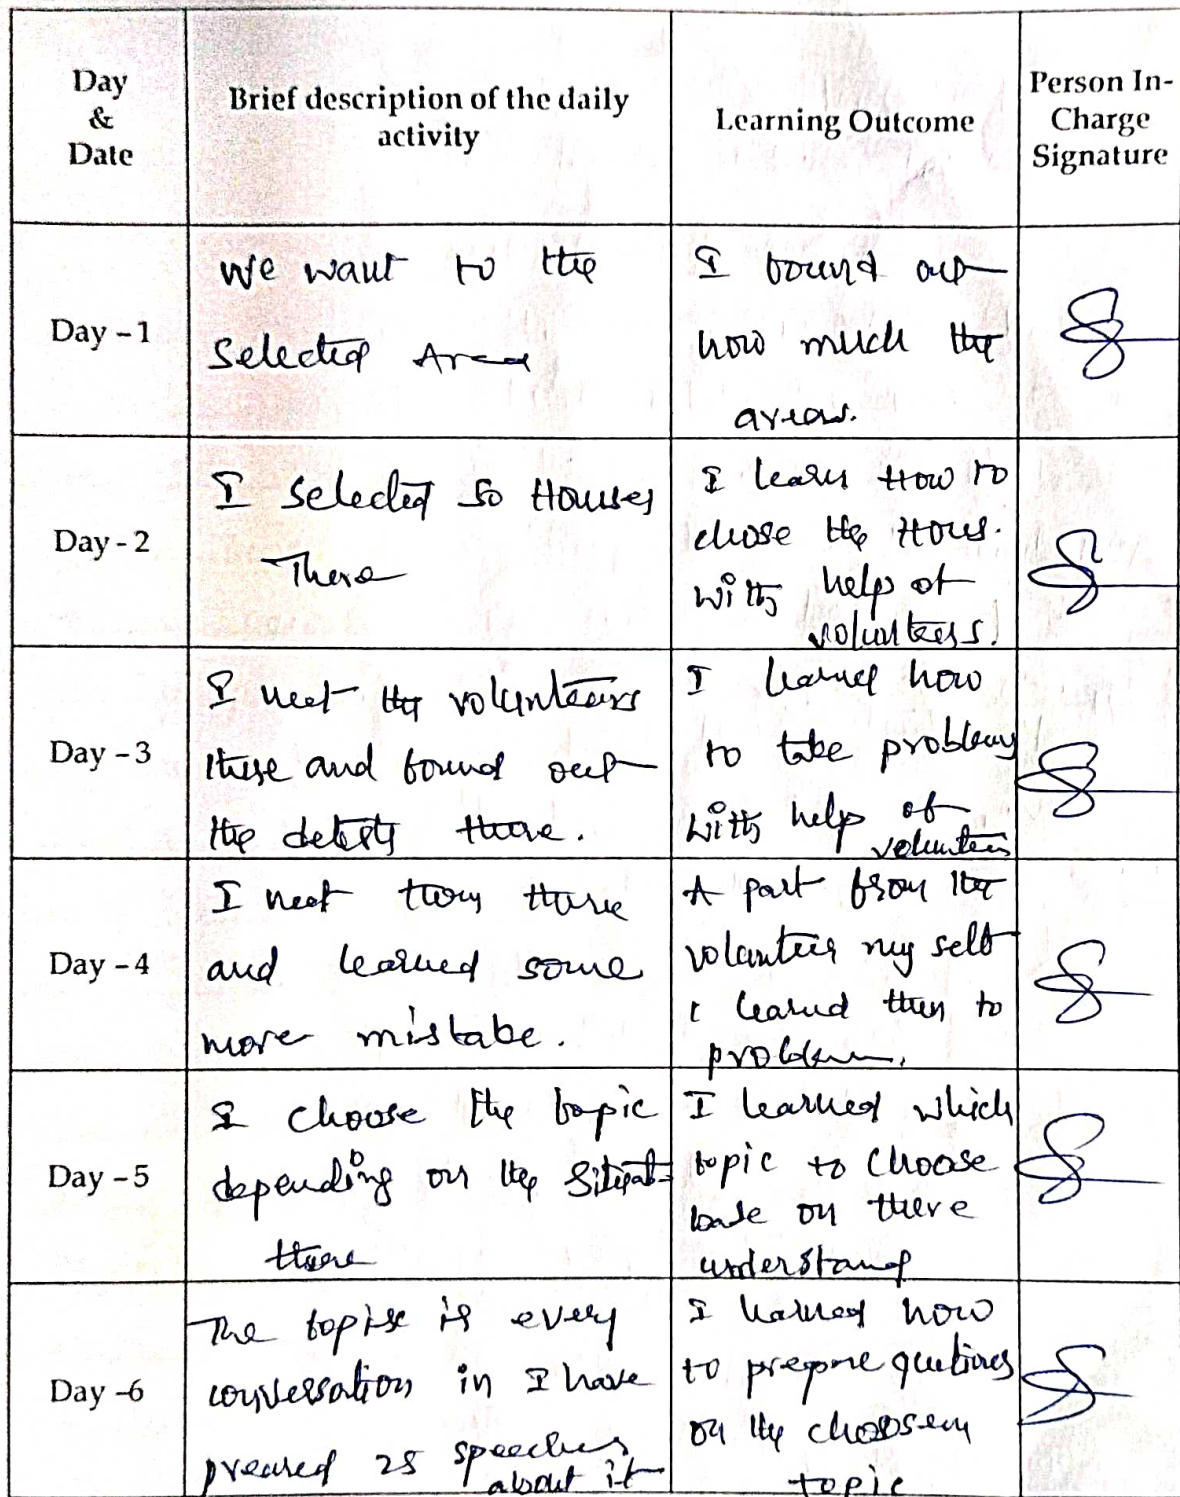 Day
&
Date
Brief description of the daily
activity
Learning Outcome
Person In-
Charge
Signature
Day - 1
We want to the
selected Area
I found out
how much the
areas.
Day - 2
I selected 50 Houses
There
I learn How to
chose the Hous.
with help of
volunteers.
Day - 3
I meet the volunteers
there and found out
the details there.
I learned how
to take problems
with help of
volunteers
Day - 4
I meet them there
and learned some
more mistake.
A part from the
volunteer my self
I learned then to
problem.
Day - 5
I choose the topic
depending on the
there
I learned which
topic to choose
base on there
understand
Day -6
The is every
conversation in I have
preared 25 speeches
about it
I learned how
to prepare
on the choosen
topic